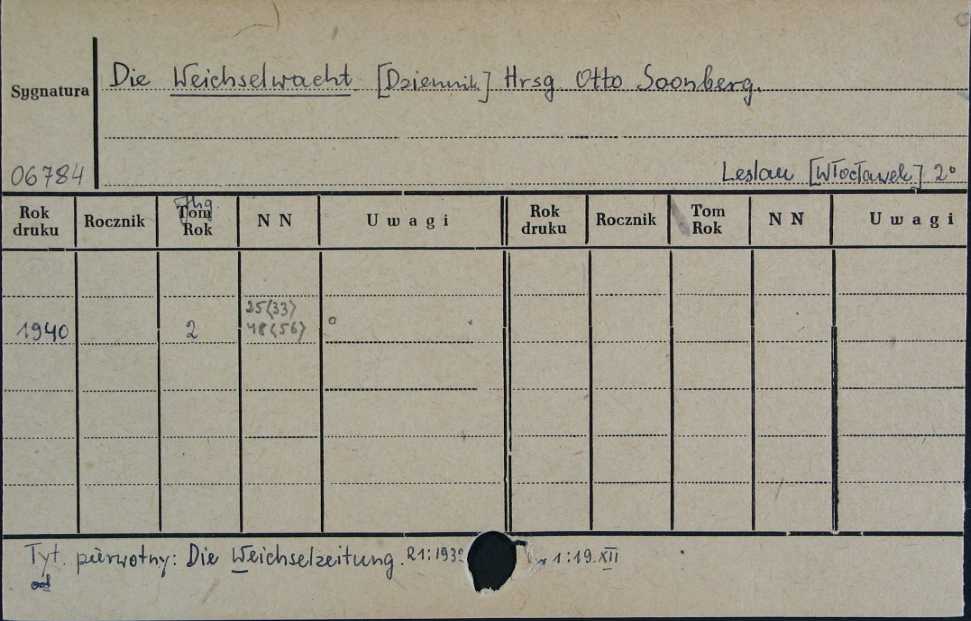 Sygnatura Die Weichselwacht [Dziennik] Hrsg. Otto Soonberg.
06784 Leslau [Włocławek] 2°
Rok druku Rocznik Jhg. Tom Rok N N Uwagi Rok druku Rocznik Tom Rok N N Uwagi
25(33)
1940 2 48(56)
Tyt. pierwotny: Die Weichselzeitung. R1:193 1:19.XII
od